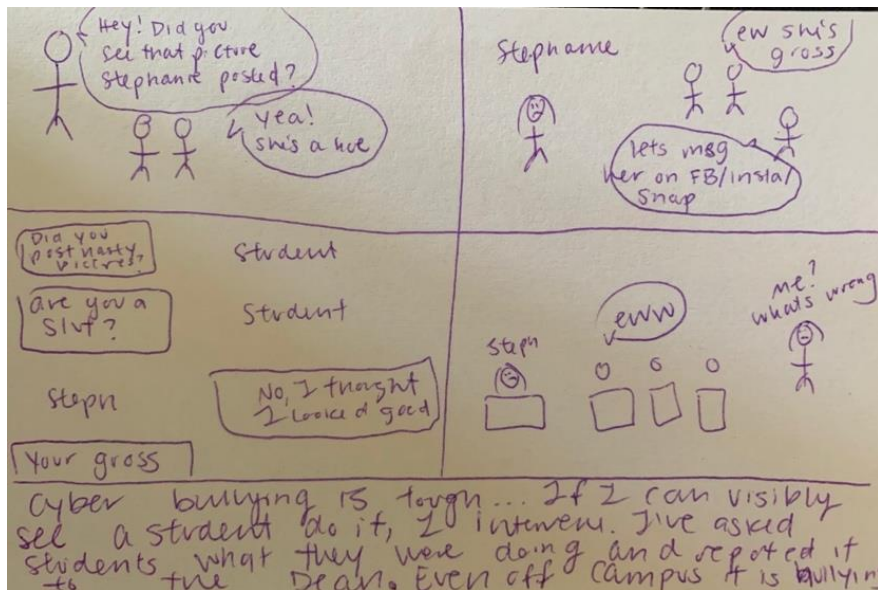 Hey! Did you
see that picture
Stephanie posted?
yea!
she's a hoe
Stephanie
ew she's
gross
lets msg
her on FB/insta/
snap
Did you
post nasty
pictres?
are you a
Slut?
Student
Student
Steph
No, I thought
I looked good
Your gross
Steph
eww
me?
whats wrong
Cyber bullying is tough... If I can visibly
see a student do it, I intervene. I've asked
students what they were doing and reported it
to the Dean. Even off campus it is bullying